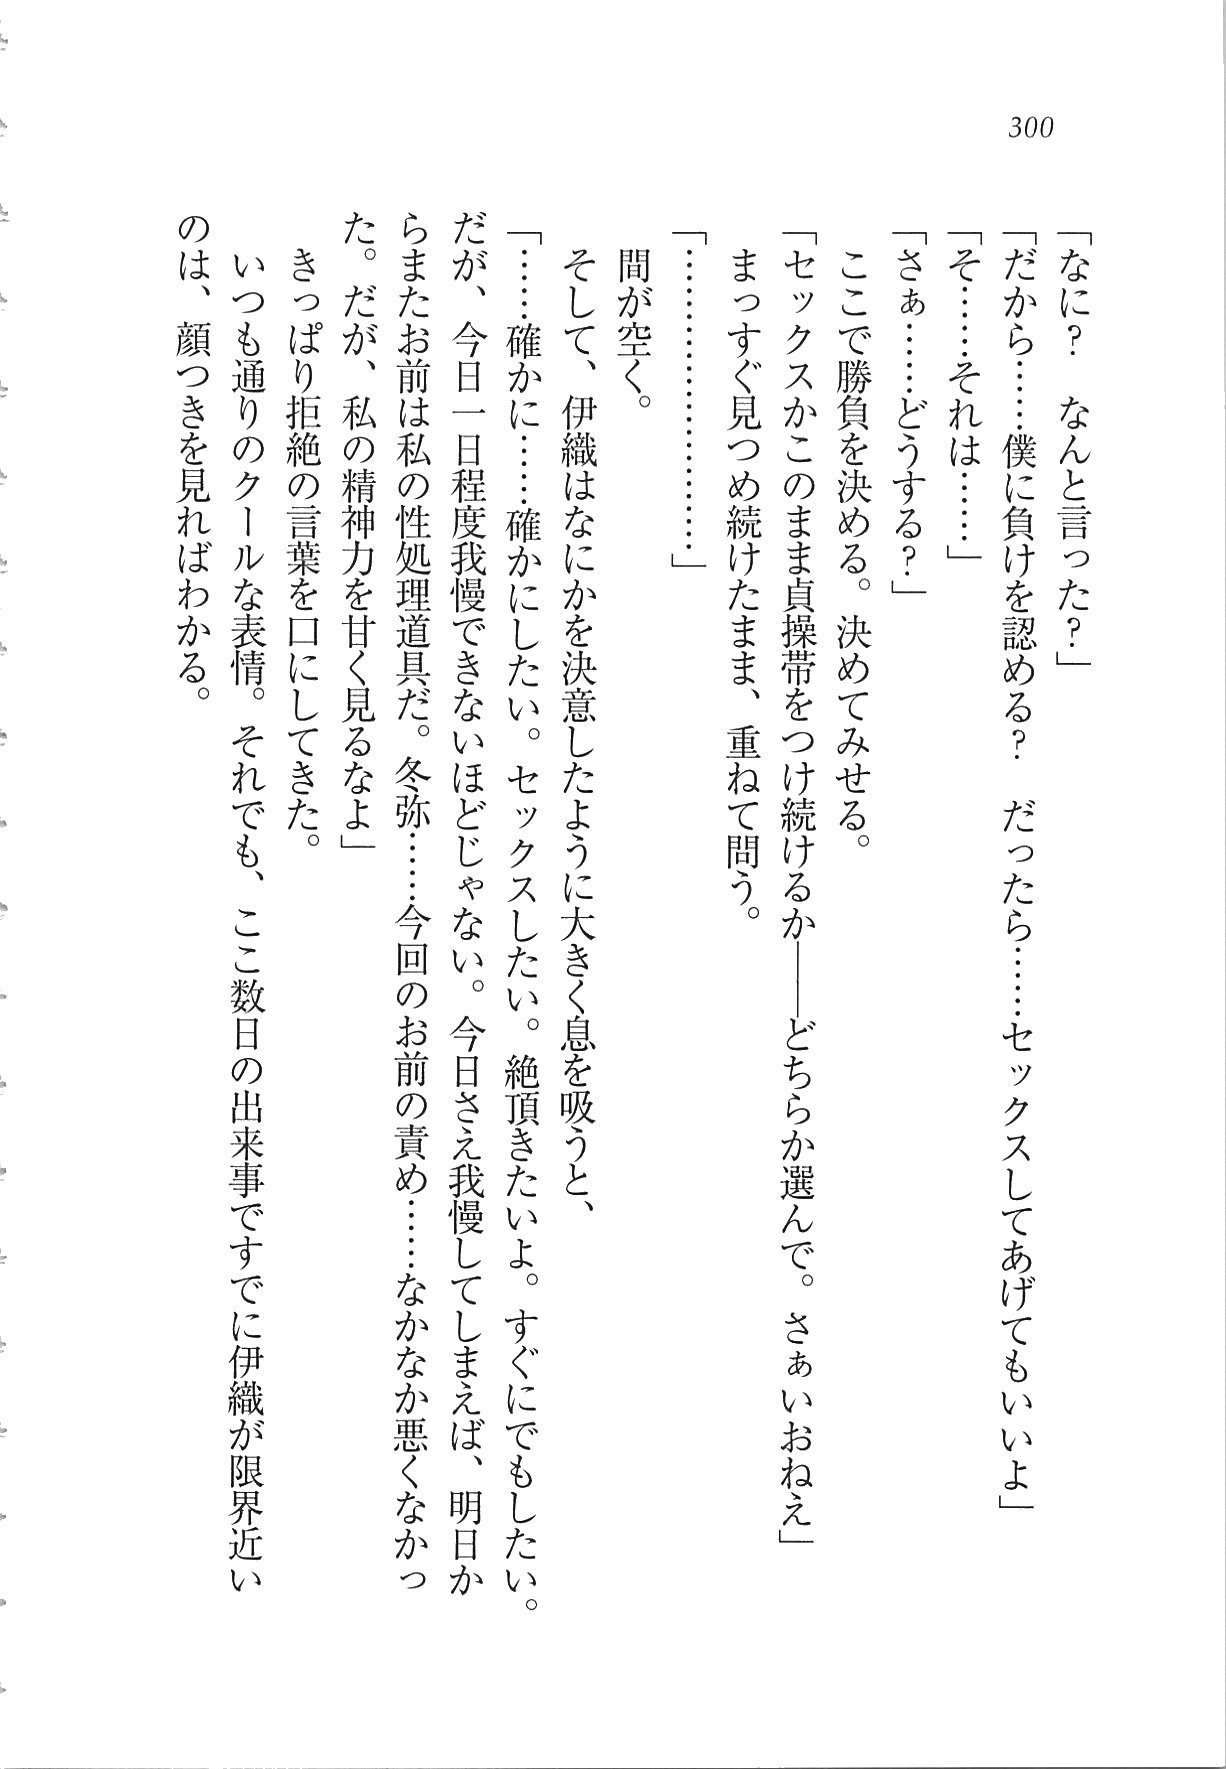 300
「なに？　なんと言った？」
「だから……僕に負けを認める？　だったら……セックスしてあげてもいいよ」
「そ……それは……」
「さぁ……どうする？」
　ここで勝負を決める。決めてみせる。
「セックスかこのまま貞操帯をつけ続けるか――どちらか選んで。さぁいおねえ」
　まっすぐ見つめ続けたまま、重ねて問う。
「……………………」
　間が空く。
　そして、伊織はなにかを決意したように大きく息を吸うと、
「……確かに……確かにしたい。セックスしたい。絶頂きたいよ。すぐにでもしたい。
だが、今日一日程度我慢できないほどじゃない。今日さえ我慢してしまえば、明日か
らまたお前は私の性処理道具だ。冬弥……今回のお前の責め……なかなか悪くなかっ
た。だが、私の精神力を甘く見るなよ」
　きっぱり拒絶の言葉を口にしてきた。
　いつも通りのクールな表情。それでも、ここ数日の出来事ですでに伊織が限界近い
のは、顔つきを見ればわかる。